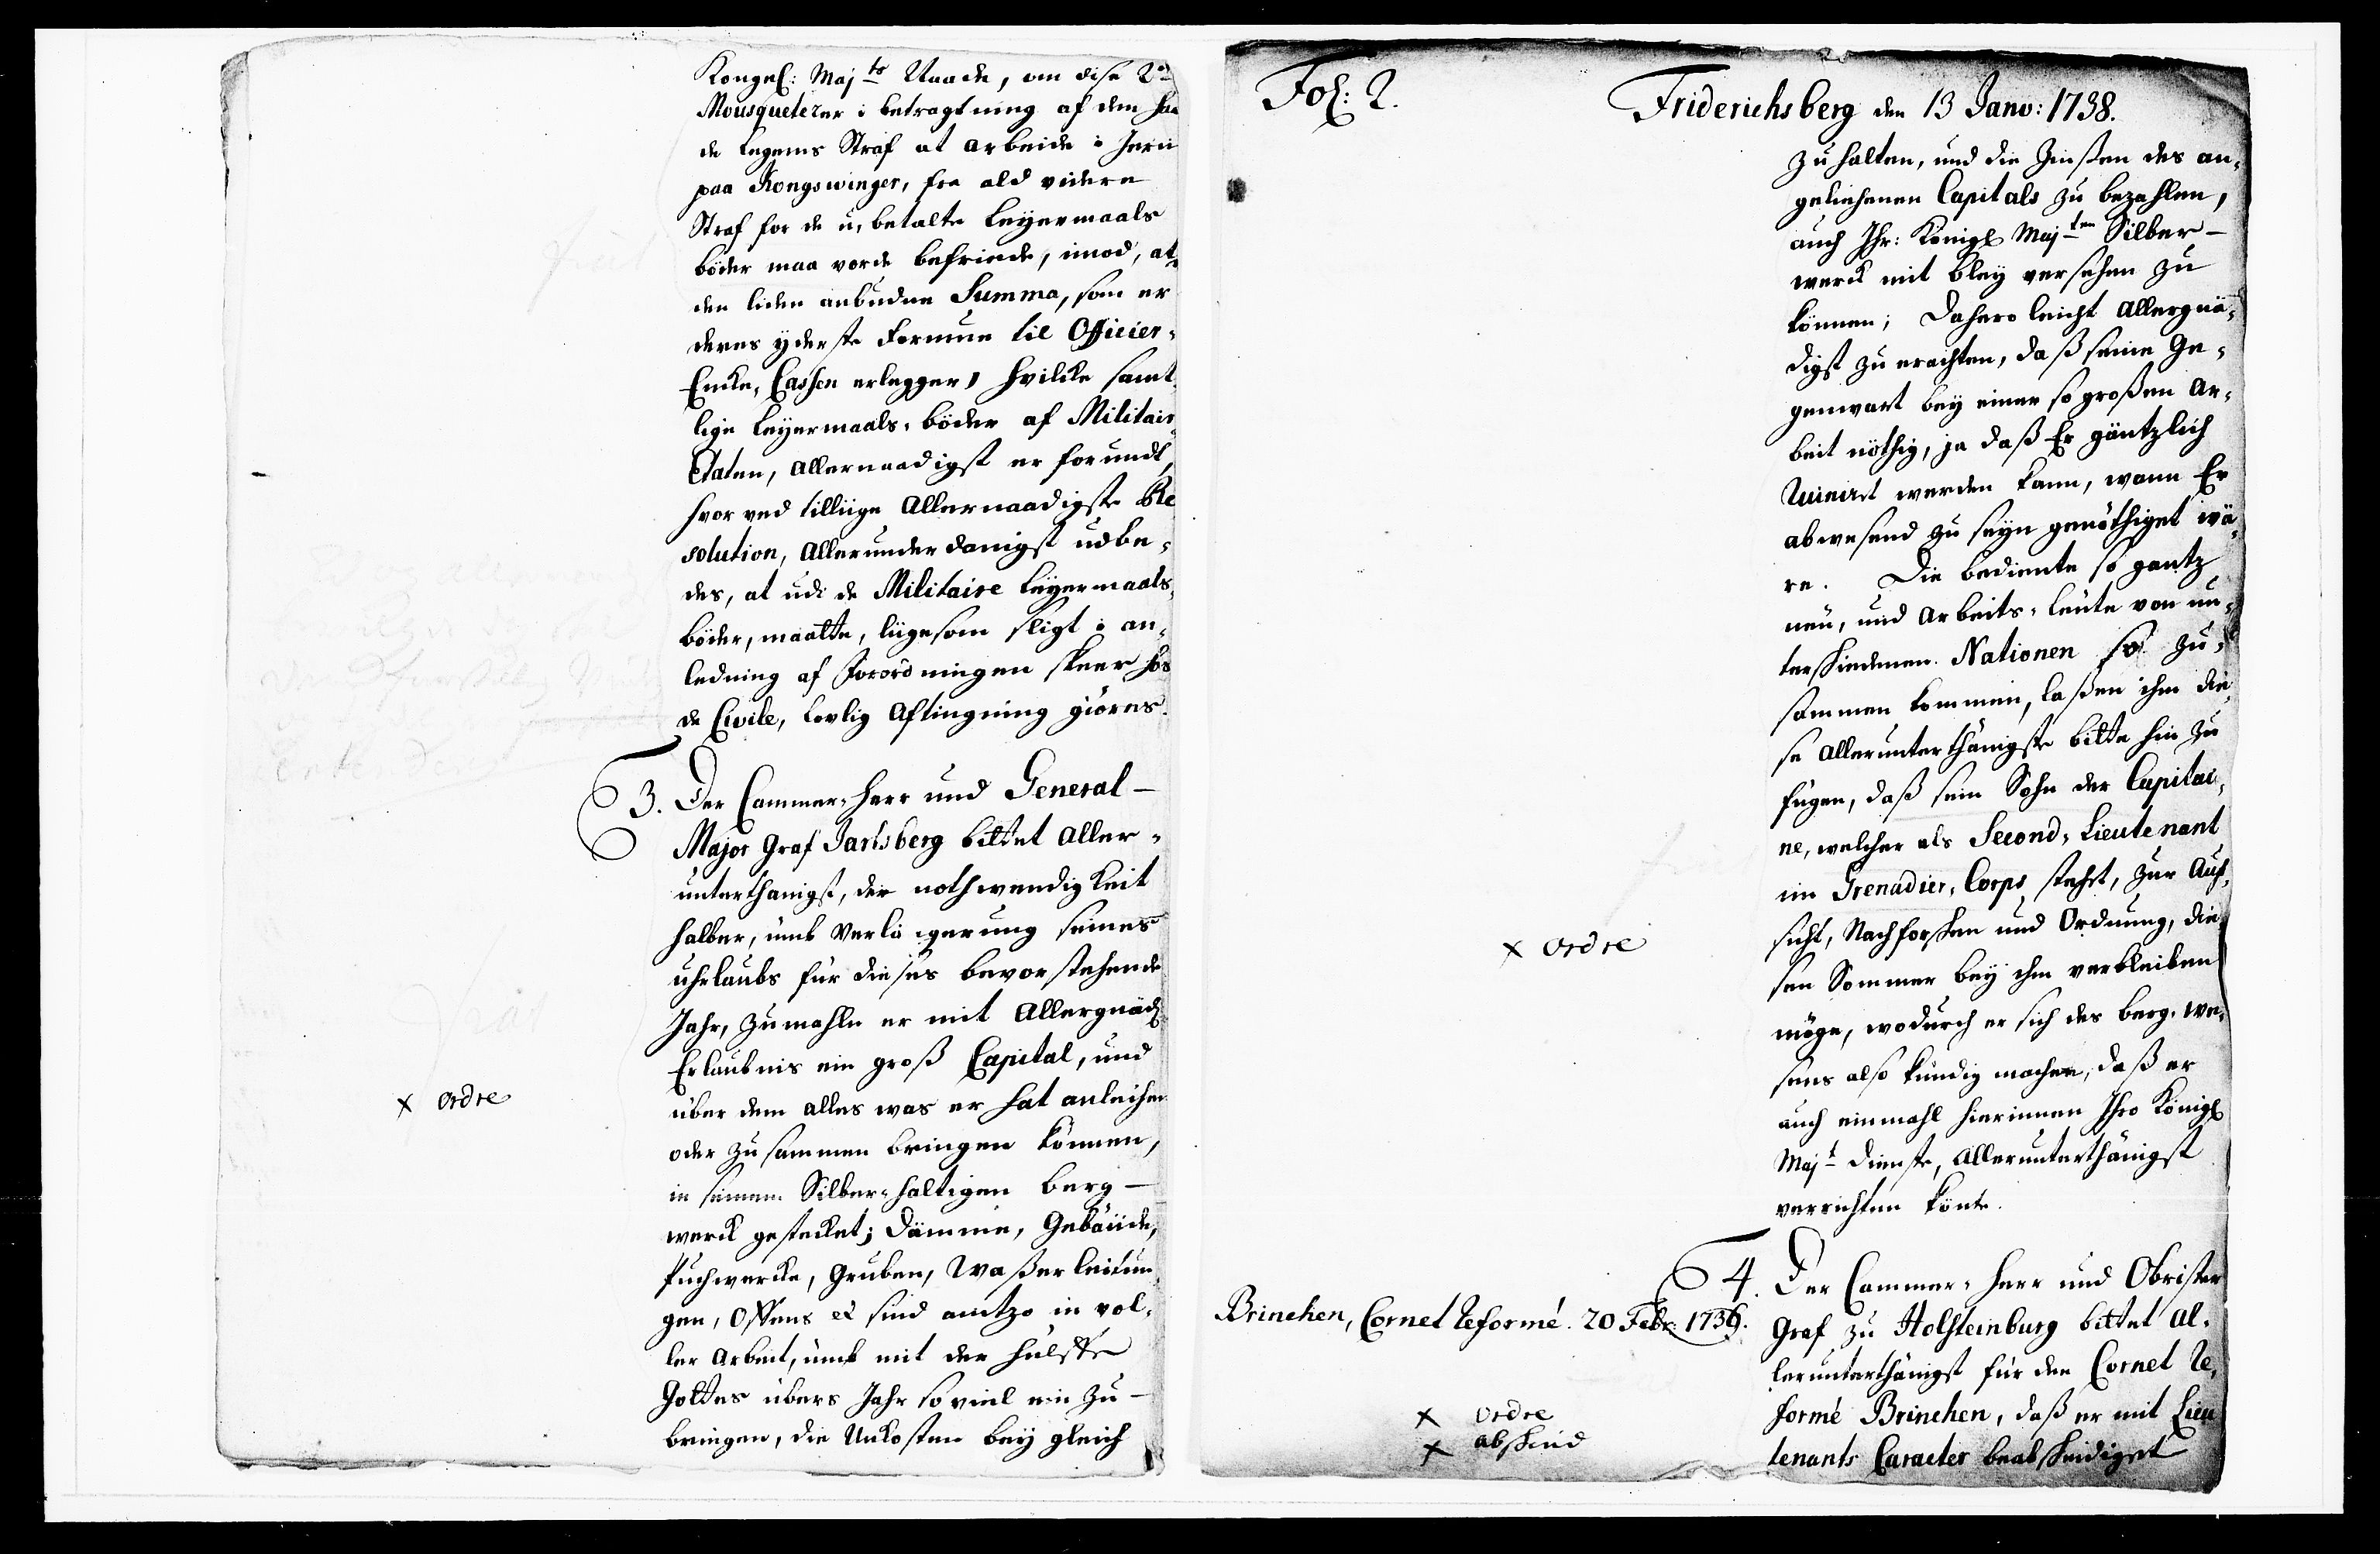 Kongel: Majts Naade, om disse 2de
Mousqueterer i betragtning af den haa
de Legems Straf at arbeide i Jern
paa Kongswinger, fra ald videre
Straf for de u-betalte Leyermaals
böder maa vorde befriede, imod, at
den liden anbudne Summa, som er
deres yderste Formue til Officier-
Encke-Cassen erlegger, hvilcke samt
lige Leyermaals-böder af Militair
Etaten, Allernaadigst er forundt,
hvor ved tillige Allernaadigste Re
solution, Allerunderdanigst udbe-
des, at udi de Militaire Leyermaals
böder, maatte, liigesom sligt i an-
ledning af Forordningen skeer hos
de Civile, lovlig Aftingning giöres.
3. Der Cammer-Herr und General-
Major Graf Jarlsberg bittet Aller-
unterthänigst, der nothwendigkeit
halber, umb Verlängerung seines
uhrlaubs für dieses bevorstehende
Jahr, zumahle er mit Allergnäd:
Erlaubnis ein groß Capital, und
über dem alles was er hat anleihen
oder zusammen bringen können,
in seinem Silber-haltigen berg-
werck gestecket; Dämme, Gebäüde,
Puchwercke, Gruben, Waßerleitun
gen, Offens &c sind anitzo in vol-
ler Arbeit, umb mit der hülffe
Gottes übers Jahr so viel ein zu-
bringen, die Unkosten bey gleich
x ordre
Fol: 2.
Friderichsberg den 13 Janv: 1738.
zu halten, und die Zinßen des an-
geliehenen Capitals zu bezahlen,
auch Ihr: Königl Majten Silber-
werck mit Bley versehen zu
können; Dahero leicht Allergnä-
digst zu erachten, daß seine Ge-
genwart bey einer so großen Ar-
beit nöthig, ja daß Er gäntzlich
Ruinirt werden kann, wann Er
abwesend zu seyn genöthiget wä-
re. Die bediente so gantz
neu, und Arbeits-leute von un-
terschiedenen Nationen so zu-
sammen kommen, laßen ihm die-
se Allerunterthänigste bitte hin zu
fügen, daß sein Sohn der Capitai-
ne, welcher als Second-Lieutenant
im Grenadier-Corps stehet, zur Auf-
sicht, Nachforschen und Ordnung, die-
sen Sommer bey ihm verbleiben
möge, wodurch er sich des berg-we-
sens also kundig machen, daß er
auch einmahl hierinnen Ihro Königl
Majt Dienste, Allerunterthänigst
verrichten könte.
x ordre
4. Der Cammer-Herr und Obrister
Graf zu Holsteinburg bittet Al-
lerunterthänigst für den Cornet Re-
formé Brinchen, daß er mit Lieu
tenants Caracter beabscheidiget
Brinchen, Cornet Reformé. 20 Febr: 1736.
x ordre
x abscheid